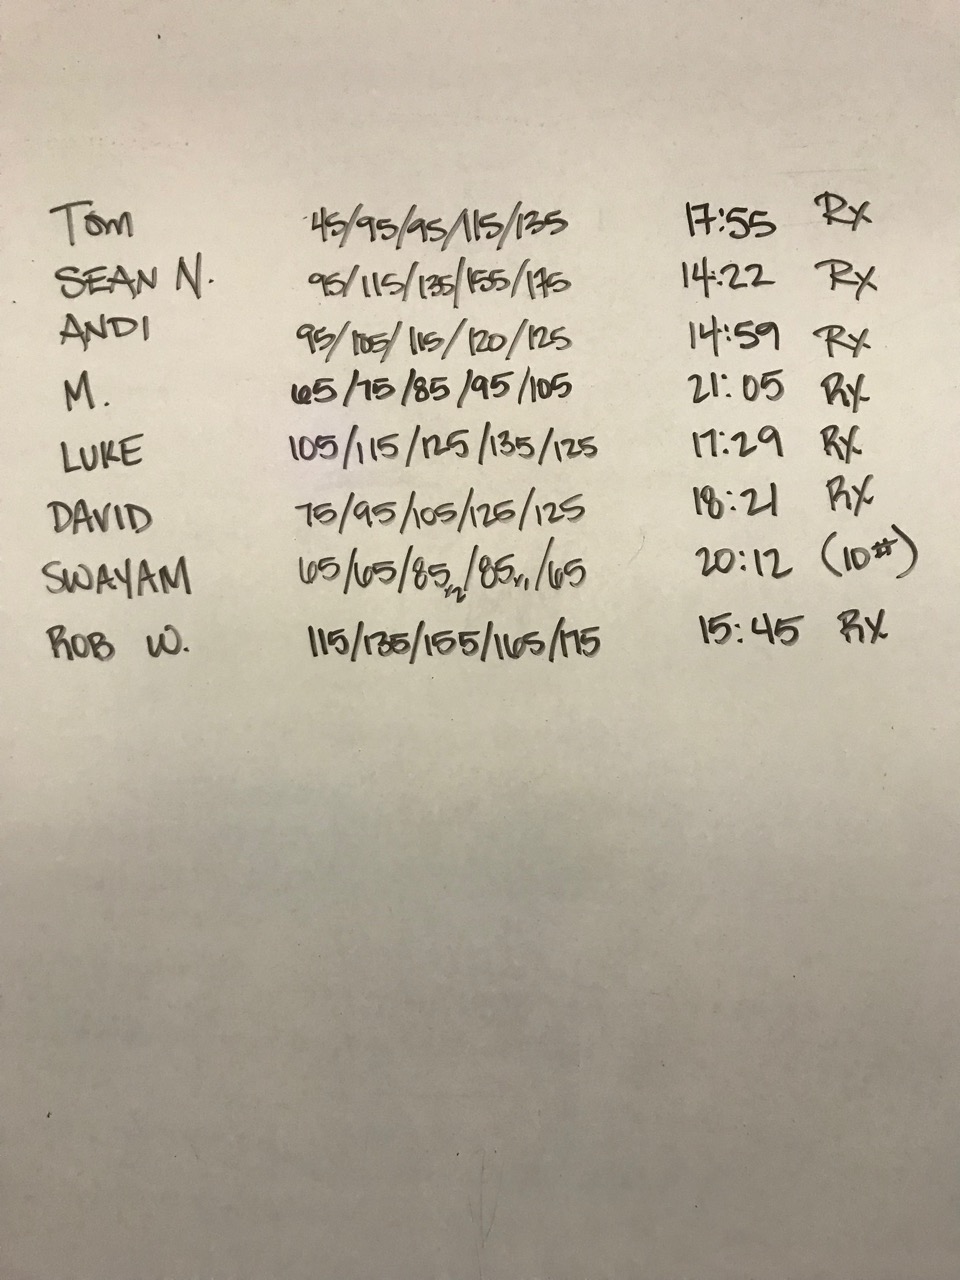 Tom 45/95/95/115/135 17:55 Rx
SEAN N. 95/115/135/155/175 14:22 Rx
ANDI 95/105/115/120/125 14:59 Rx
M. 65/75/85/95/105 21:05 Rx
LUKE 105/115/125/135/125 17:29 Rx
DAVID 75/95/105/125/125 18:21 Rx
SWAYAM 65/65/85x2/85x1/65 20:12 (10#)
ROB W. 115/135/155/165/175 15:45 Rx